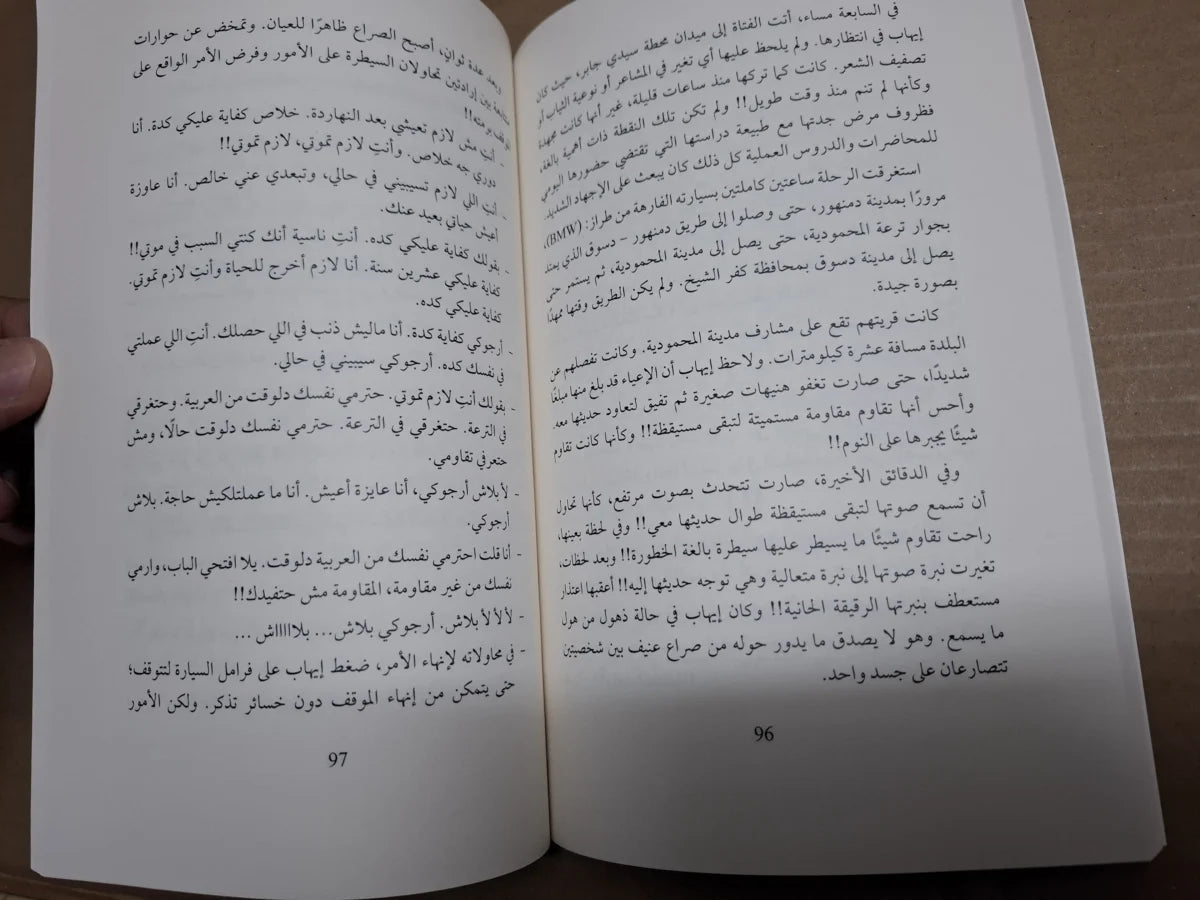 في السابعة مساء، أتت الفتاة إلى ميدان محطة سيدي جابر، حيث كان
إيهاب في انتظارها. ولم يلحظ عليها أي تغير في المشاعر أو نوعية الثياب أو
تصفيف الشعر. كانت كما تركها منذ ساعات قليلة، غير أنها كانت مجهدة
وكأنها لم تنم منذ وقت طويل!! ولم تكن تلك النقطة ذات أهمية بالغة،
فظروف مرض جدتها مع طبيعة دراستها التي تقتضي حضورها اليومي
للمحاضرات والدروس العملية كل ذلك كان يبعث على الإجهاد الشديد.
استغرقت الرحلة ساعتين كاملتين بسيارته الفارهة من طراز: (BMW)،
مرورًا بمدينة دمنهور، حتى وصلوا إلى طريق دمنهور – دسوق الذي يمتد
بجوار ترعة المحمودية، حتى يصل إلى مدينة المحمودية، ثم يستمر حتى
يصل إلى مدينة دسوق بمحافظة كفر الشيخ. ولم يكن الطريق وقتها ممهدًا
بصورة جيدة.
كانت قريتهم تقع على مشارف مدينة المحمودية. وكانت تفصلهم عن
البلدة مسافة عشرة كيلومترات. ولاحظ إيهاب أن الإعياء قد بلغ منها مبلغًا
شديدًا، حتى صارت تغفو هنيهات صغيرة ثم تفيق لتعاود حديثها معه.
وأحس أنها تقاوم مقاومة مستميتة لتبقى مستيقظة!! وكأنها كانت تقاوم
شيئًا يجبرها على النوم!!
وفي الدقائق الأخيرة، صارت تتحدث بصوت مرتفع، كأنها تحاول
أن تسمع صوتها لتبقى مستيقظة طوال حديثها معي!! وفي لحظة بعينها،
راحت تقاوم شيئًا ما يسيطر عليها سيطرة بالغة الخطورة!! وبعد لحظات،
تغيرت نبرة صوتها إلى نبرة متعالية وهي توجه حديثها إليه!! أعقبها اعتذار
مستعطف بنبرتها الرقيقة الحانية!! وكان إيهاب في حالة ذهول من هول
ما يسمع. وهو لا يصدق ما يدور حوله من صراع عنيف بين شخصيتين
تتصارعان على جسد واحد.
96
وبعد عدة ثوانٍ، أصبح الصراع ظاهرًا للعيان. وتمخض عن حوارات
متتابعة بين إرادتين تحاولان السيطرة على الأمور وفرض الأمر الواقع على
الموقف برمته!!
- أنتِ مش لازم تعيشي بعد النهاردة. خلاص كفاية عليكي كدة. أنا
دوري جه خلاص. وأنتِ لازم تموتي، لازم تموتي!!
- أنتِ اللي لازم تسيبيني في حالي، وتبعدي عني خالص. أنا عاوزة
أعيش حياتي بعيد عنك.
- بقولك كفاية عليكي كده. أنتِ ناسية أنك كنتي السبب في موتي!!
كفاية عليكي عشرين سنة. أنا لازم أخرج للحياة وأنتِ لازم تموتي.
كفاية عليكي كده.
- أرجوكي كفاية كدة. أنا ماليش ذنب في اللي حصلك. أنتِ اللي عملتي
في نفسك كده. أرجوكي سيبيني في حالي.
- بقولك أنتِ لازم تموتي. حترمي نفسك دلوقت من العربية. وحتغرقي
في الترعة. حتغرقي في الترعة. حترمي نفسك دلوقت حالًا، ومش
حتعرفي تقاومي.
- لأ بلاش أرجوكي، أنا عايزة أعيش. أنا ما عملتلكيش حاجة. بلاش
أرجوكي.
- أنا قلت احترمي نفسك من العربية دلوقت. يلا افتحي الباب، وارمي
نفسك من غير مقاومة، المقاومة مش حتفيدك!!
- لأ لأ لأ بلاش. أرجوكي بلاش... بلااااااش ...
- في محاولاته لإنهاء الأمر، ضغط إيهاب على فرامل السيارة لتتوقف؛
حتى يتمكن من إنهاء الموقف دون خسائر تذكر. ولكن الأمور
97